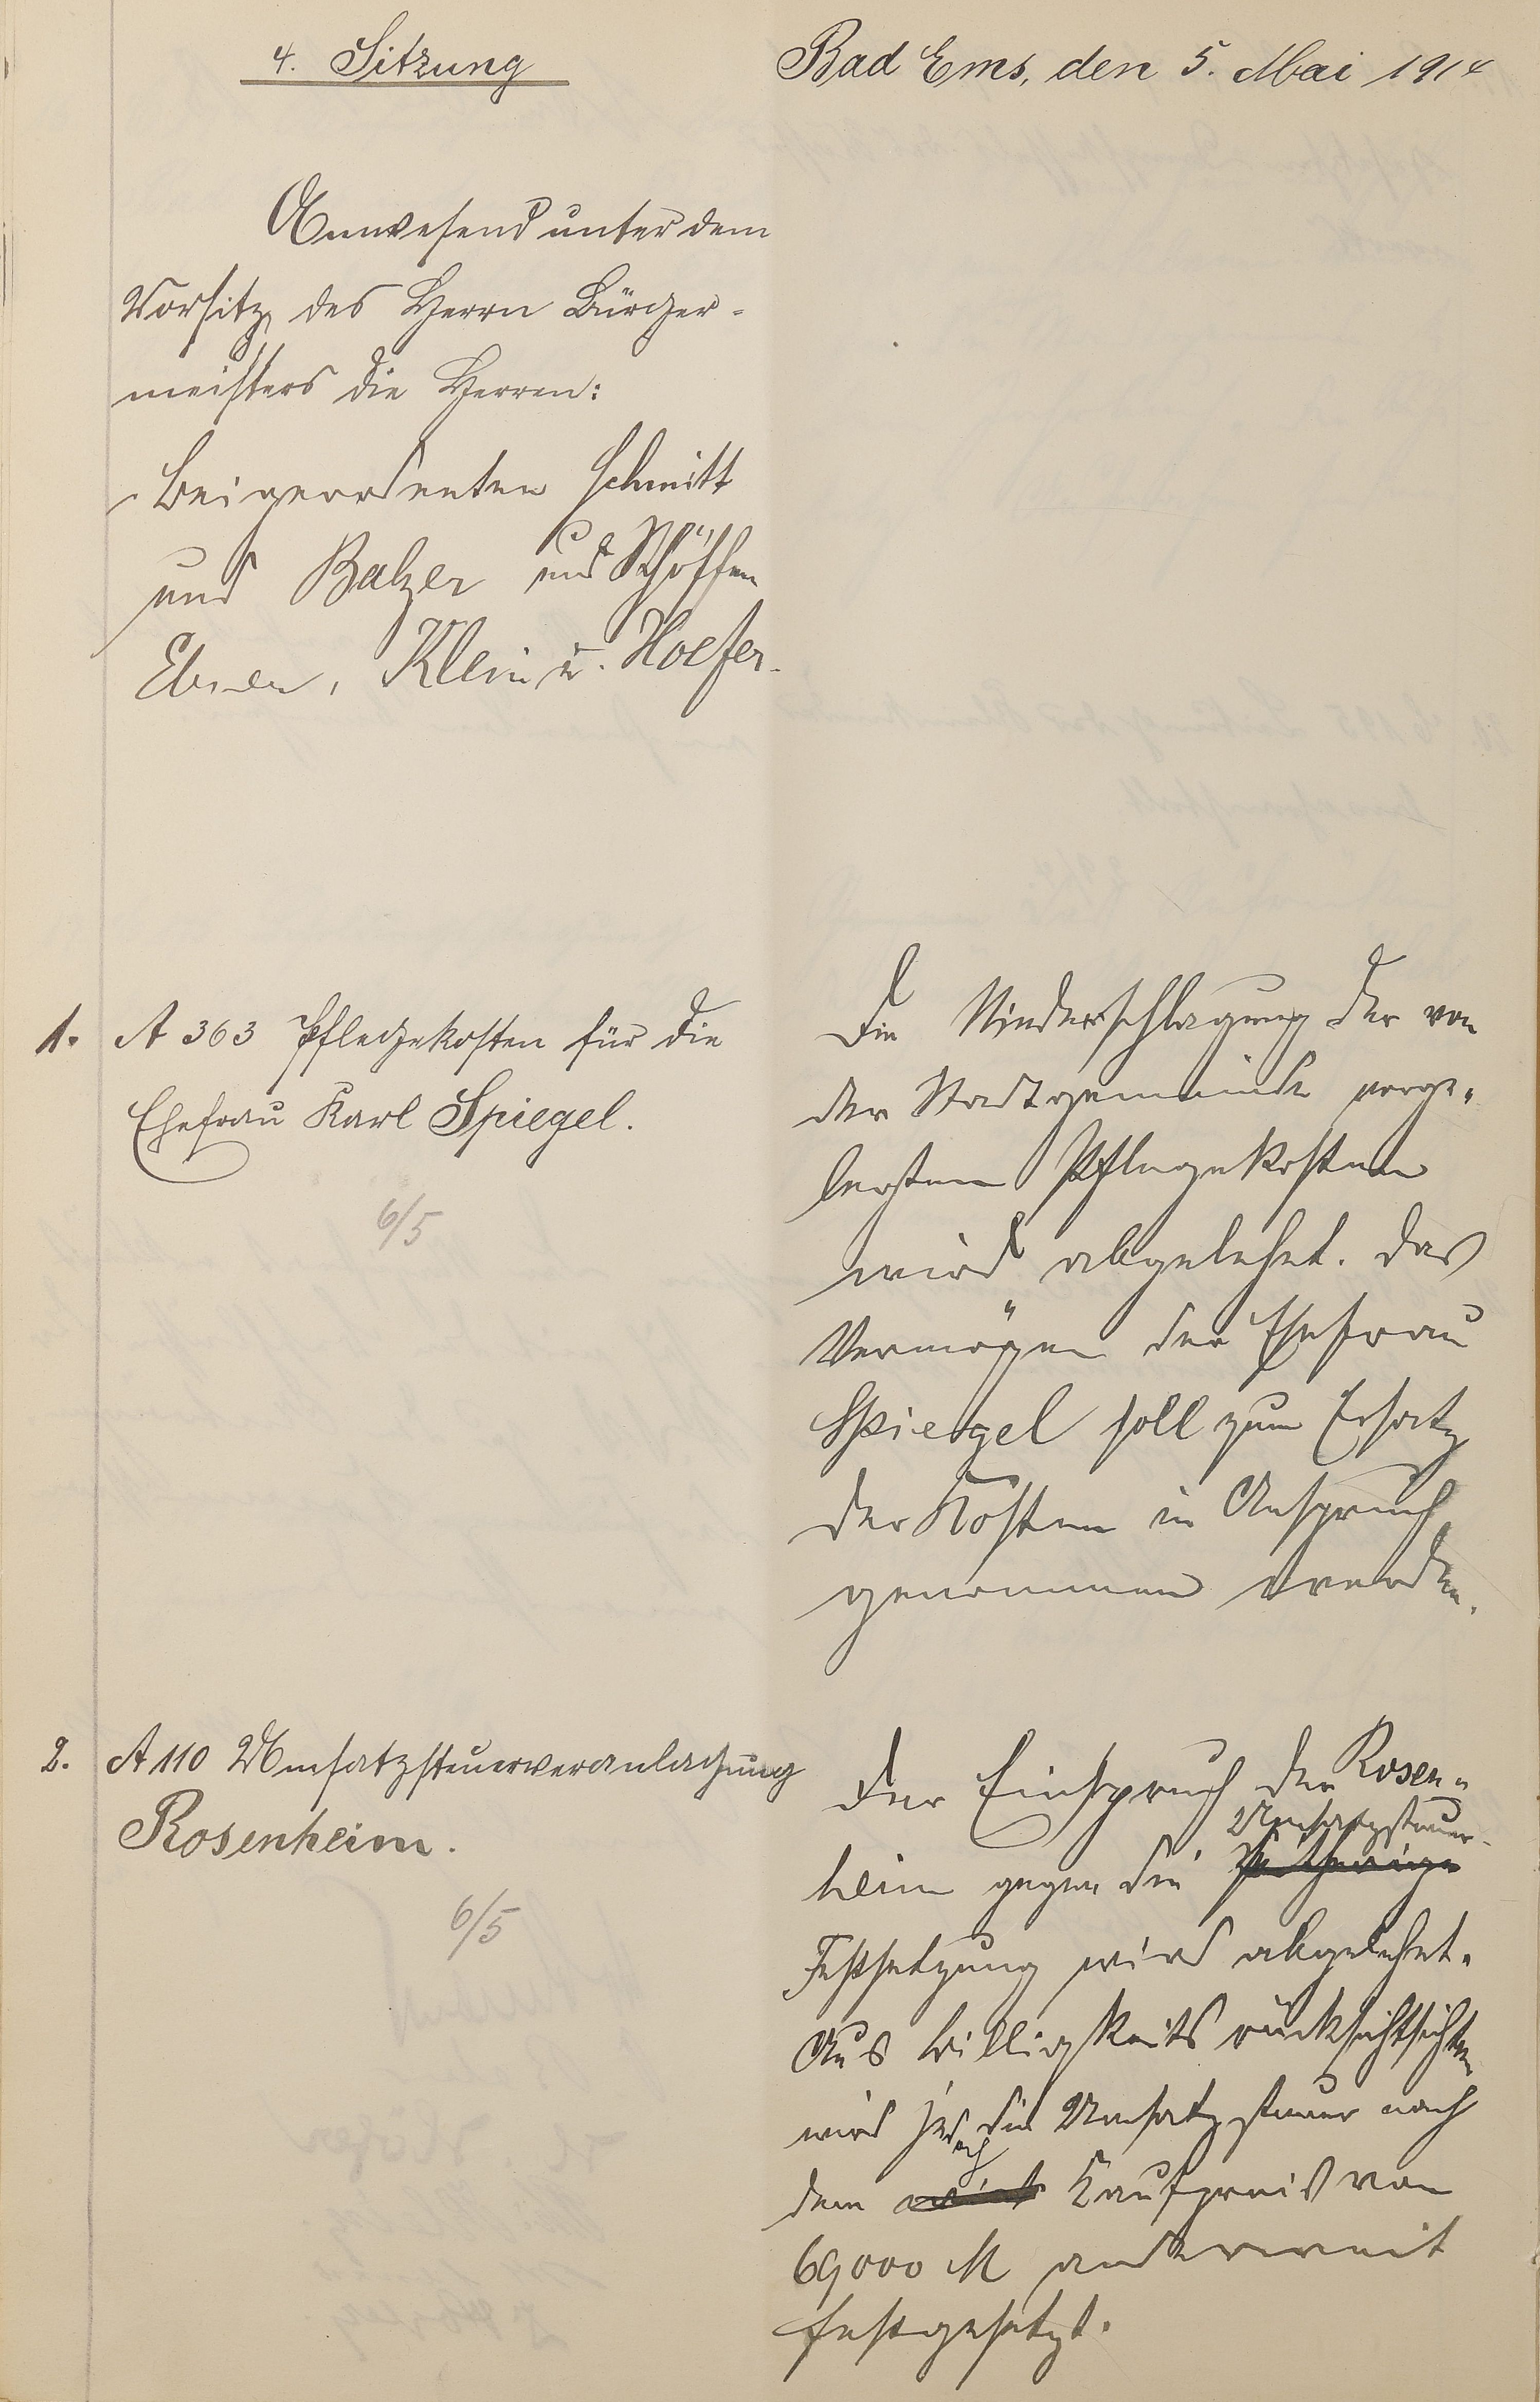 4. Sitzung
Bad Ems, den 5. Mai 1914
Anwesend unter dem
Vorsitz des Herrn Bürger-
meisters die Herren:
Beigeordneten Schmitt
und Balzer und Schöffen
Ebner, Klein u. Hoefer.
1. A 363 Pflegekosten für die
Ehefrau Karl Spiegel.
6/5
Die Niederschlagung der von
der Stadtgemeinde vorge-
legten Pflegekosten
wird abgelehnt. Das
Vermögen der Ehefrau
Spiegel soll zum Ersatz
der Kosten in Anspruch
genommen werden.
2. A 110 Umsatzsteuerveranlagung
Rosenheim.
6/5
Der Einspruch der Rosen-
Umsatzsteuer-
heim gegen die
Festsetzung wird abgelehnt.
Aus Billigkeitsrücksichtsichten
wird jedoch die Umsatzsteuer nach
dem Kaufpreis von
69000 M anderweit
festgesetzt.